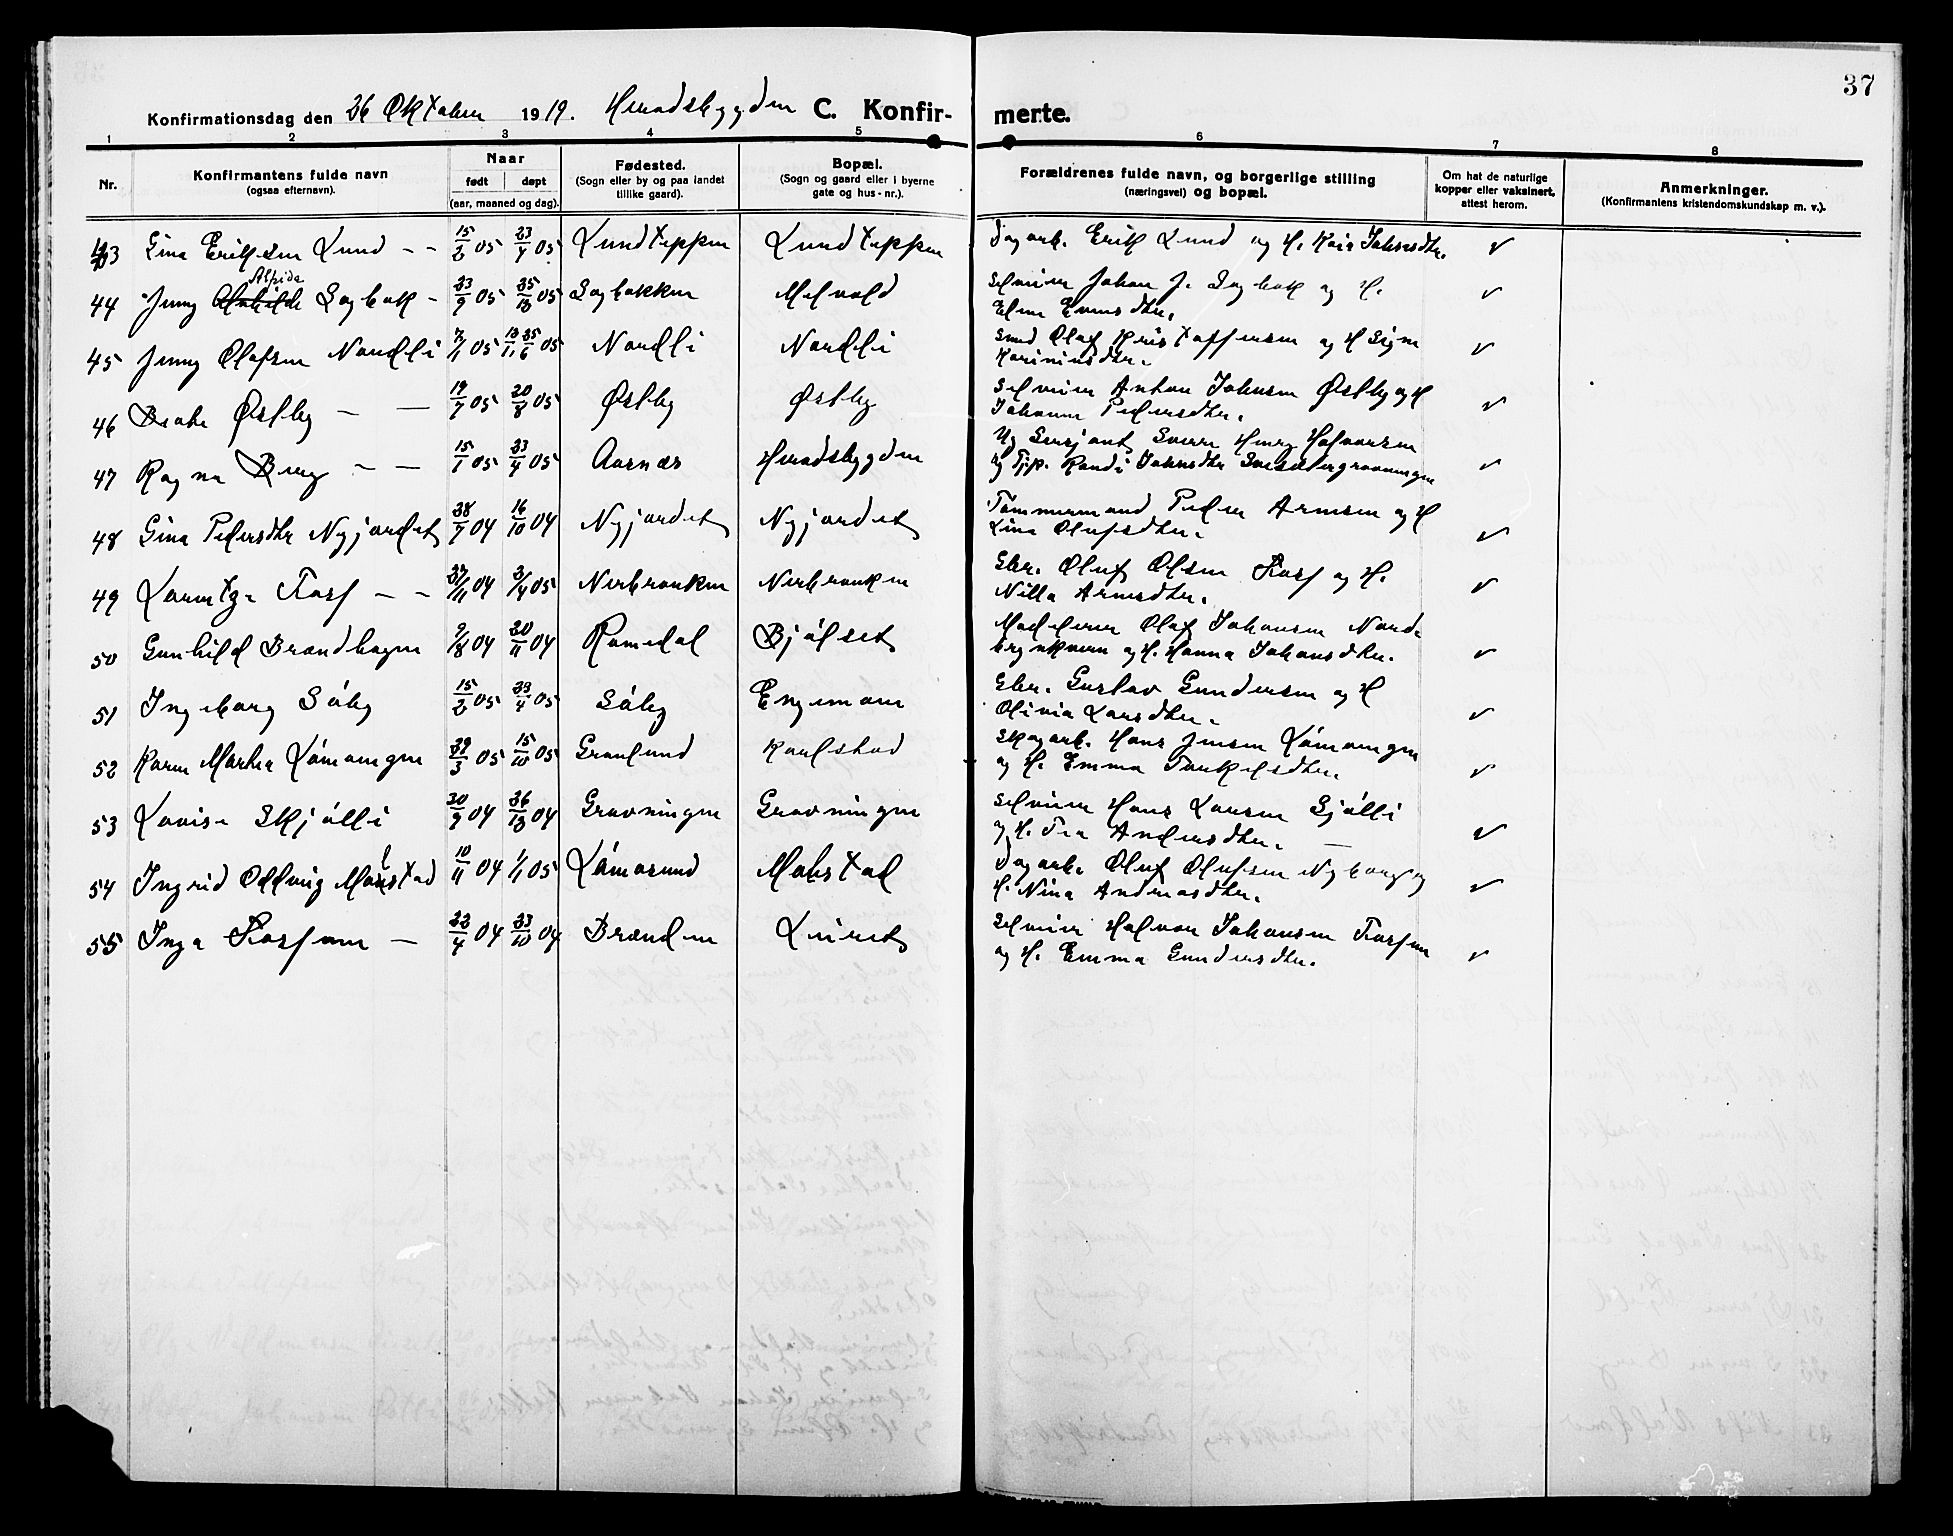 37
Konfirmationsdag den 26 Oktober 1919. Heradsbygden C. Konfirmerte.
1 2 3 4 5 6 7 8
Nr. Konfirmantens fulde navn (ogsaa efternavn). Naar født døpt (aar, maaned og dag). Fødested. (Sogn eller by og paa landet tillike gaard). Bopæl. (Sogn og gaard eller i byerne gate og hus-nr.). Forældrenes fulde navn, og borgerlige stilling (næringsvei) og bopæl. Om hat de naturlige kopper eller vaksinert, attest herom. Anmerkninger. (Konfirmantens kristendomskundskap m. v.).
43 Gina Eriksen Lund - - 15/2 05 23/4 05 Lundteppen Lundteppen Dagarb. Erik Lund og H. Kaia Johansdtr. v
Alfida
44 Jenny Sagbak - 23/9 05 25/12 05 Sagbakken Melvold Selveier Johan J. Sagbak og H. v
Eline Evensdtr.
45 Jenny Olafsen Nordli 7/1 05 25/6 05 Nordli Nordli Smed Olaf Kristoffersen og H Signe v
Kariniusdtr.
46 Beate Østby - - 19/7 05 20/8 05 Østby Østby Selveier Anton Johnsen Østby og H v
Johanne Pedersdtr.
47 Ragna Berg - - 15/1 05 23/4 05 Aasnes Heradsbygden Ug Sersjant Sverre Henry Halvorsen
og Pip. Randi Johnsdtr v
48 Gina Pedersdtr Nyjordet 28/7 04 16/10 04 Nyjordet Nyjordet Tømmermand Peder Arnesen og H
Lina Olufsdtr. v
49 Lærentze Fors - - 27/11 04 2/4 05 Nerbraaten Nerbraaten Gbr. Oluf Olsen Fors og H. v
Nilla Arnesdtr.
50 Gunhild Brændhagen 9/8 04 20/11 04 Romedal Bjølset Maskinier Olaf Johansen Nord-
og H. Hanna Johansdtr. v
51 Ingeborg Søby 15/2 05 23/4 05 Søby Engemoen Gbr. Gustav Gundersen og H
Olivia Larsdtr. v
52 Karen Marthea Lømoengen 29/3 05 15/10 05 Grønlund Karlstad Skogarb. Hans Jensen Lømoengen
og H. Emma Torkelsdtr. v
53 Lovise Skjølli 20/9 04 26/12 04 Gravningen Gravningen Selveier Hans Larsen Sjølli
og H. Tea Andersdtr. - v
54 Ingrid Oddveig Malstad 10/11 04 1/1 05 Lømosund Malstad Dagarb. Oluf Olufsen Nyborg og
H. Nina Andreasdtr. v
55 Inga Forsmoen - 22/4 04 23/10 04 Brænden Leiret Selveier Halvor Johansen Forsmoen
og H. Emma Gundersdtr. v